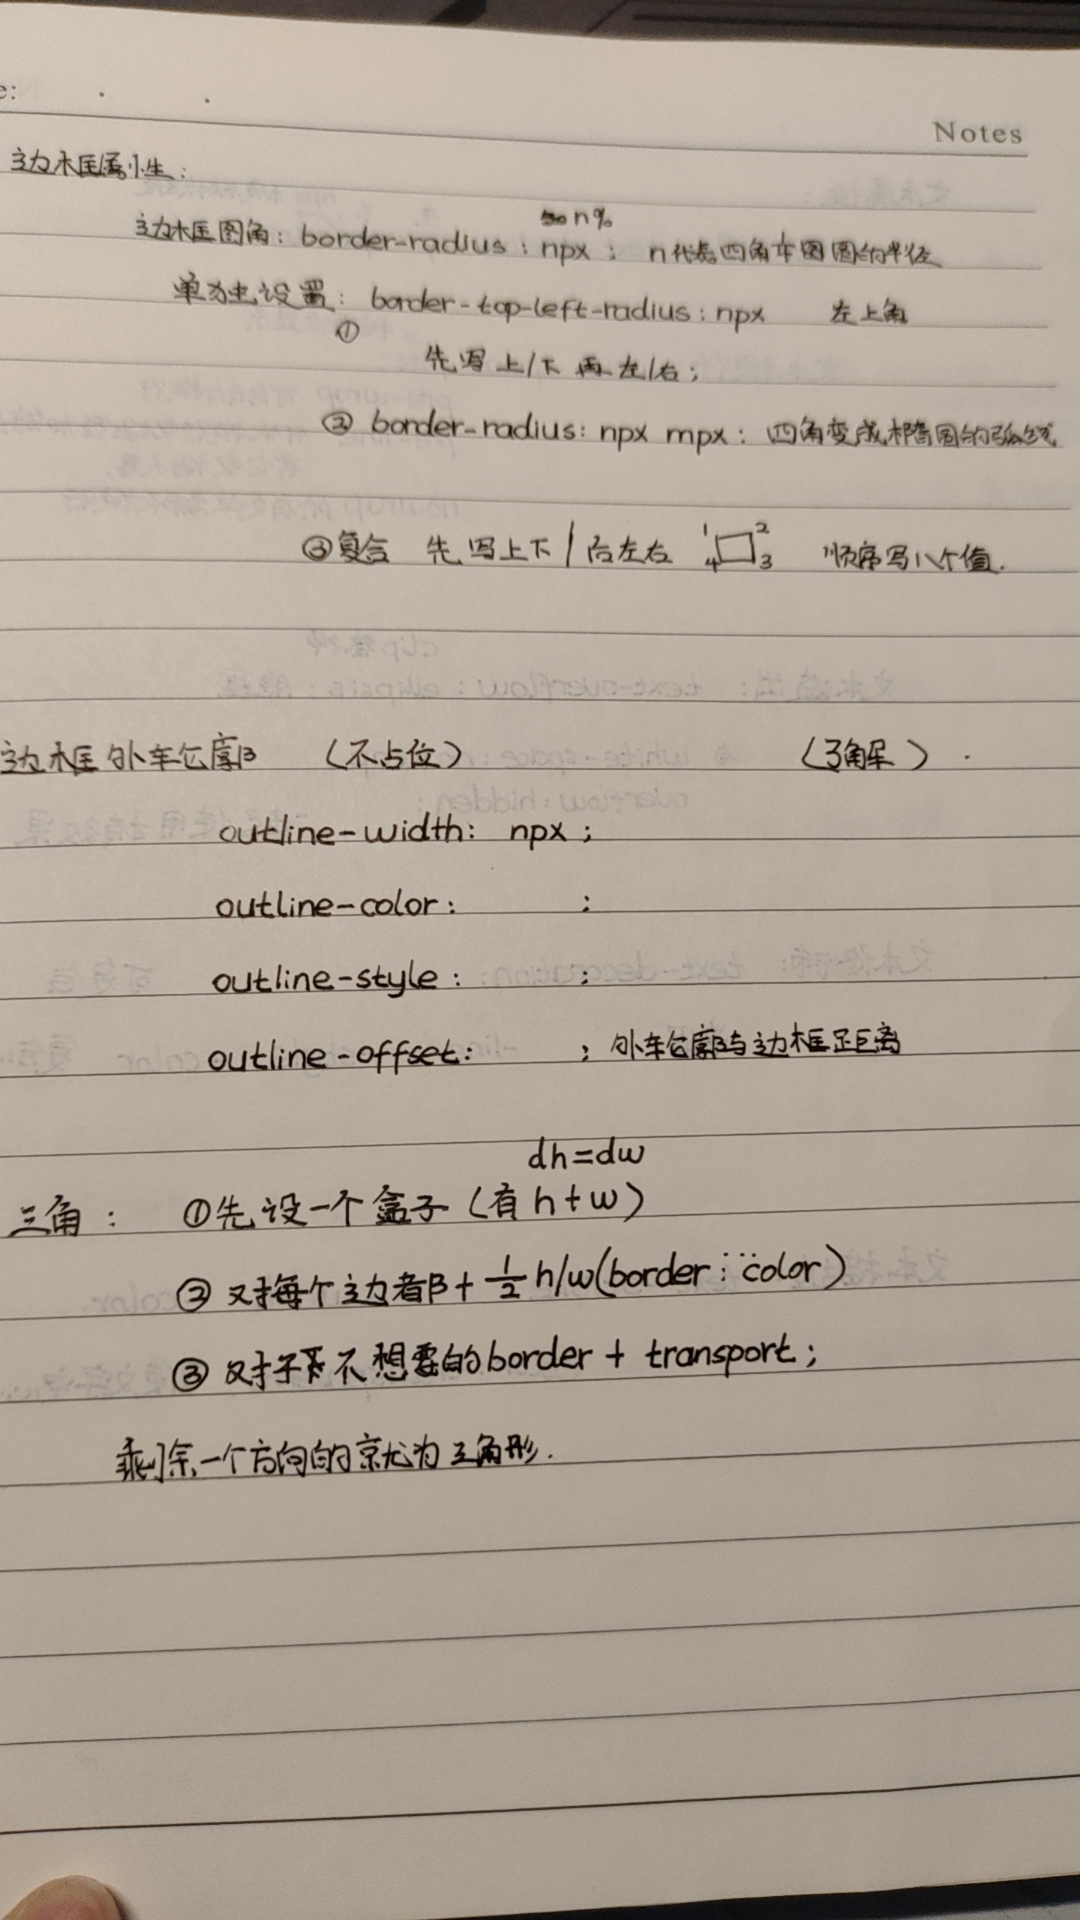 e:
Notes
边框属性：
n%
边框圆角：border-radius：npx； n代表四角车圆圆的半径
单独设置：border-top-left-radius：npx 左上角
① 先写上/下 再左/右；
② border-radius：npx mpx：四角变成椭圆的弧线
③复合 先写上下/后左右 1 2 3 4 顺序写八个值.
边框外轮廓 （不占位） （了解）.
outline-width： npx；
outline-color： ；
outline-style： ；
outline-offset： ；外轮廓与边框距离
dh=dw
三角： ①先设一个盒子（有h+w）
② 对每个边都+ 1/2 h/w(border：…color)
③ 对于不想要的border + transport；
剩余一个方向的就为三角形.